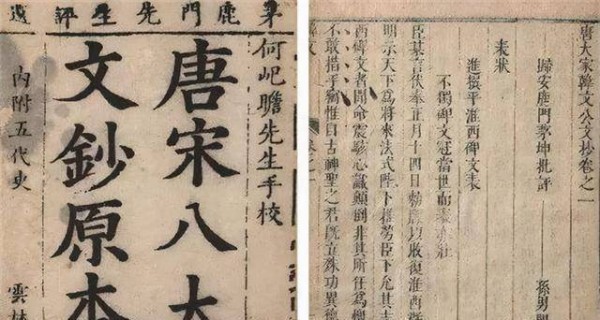 茅鹿門先生評選
何屺瞻先生手校
唐宋八大
文鈔原本
內附五代史
雲林
唐大家韓文公文抄卷之一
歸安鹿門茅坤批評
孫男
表狀
進撰平淮西碑文表
不獨碑文冠當世而表亦壯
臣某言伏奉正月十四日勅牒以收復淮西
明示天下為將來法式陛下推勞臣下允其志
西碑文者聞命震駭心識顛倒非其所任為愧
不敢措手竊惟自古神聖之君既立殊功異德